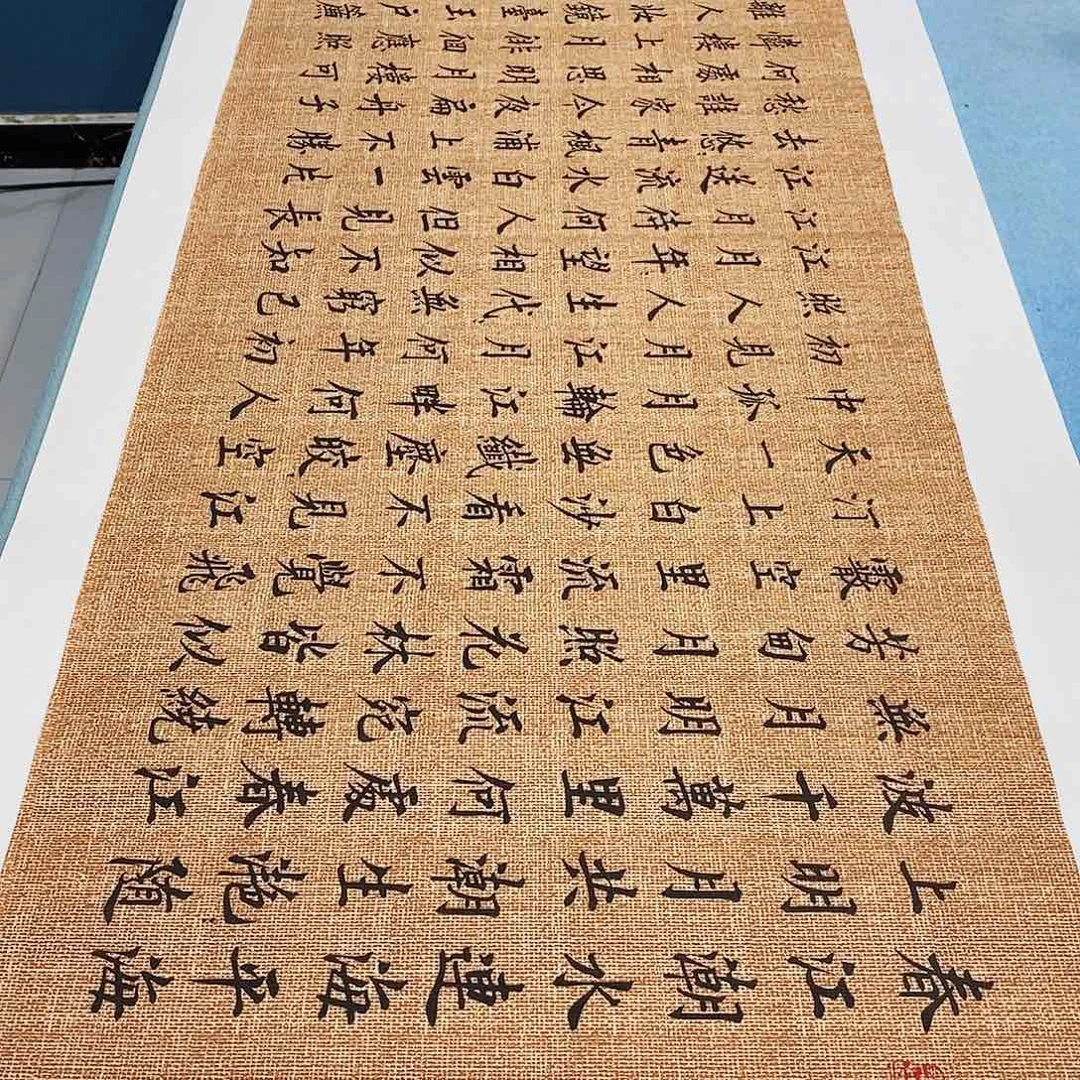 春江潮水連海平海
上明月共潮生灔隨
波千萬里何處春江
無月明江流宛轉繞
芳甸月照花林皆似
霰空里流霜不覺飛
汀上白沙看不見江
天一色無纖塵皎空
中孤月輪江畔何人
初見月江月何年初
照人人生代無窮已
江月年望相似不知
江月待何人但見長
江送流水白雲一片
去悠青楓浦上不勝
愁誰家今夜扁舟子
何處相思明月樓可
憐樓上月徘徊應照
離人妝鏡臺玉戶簾